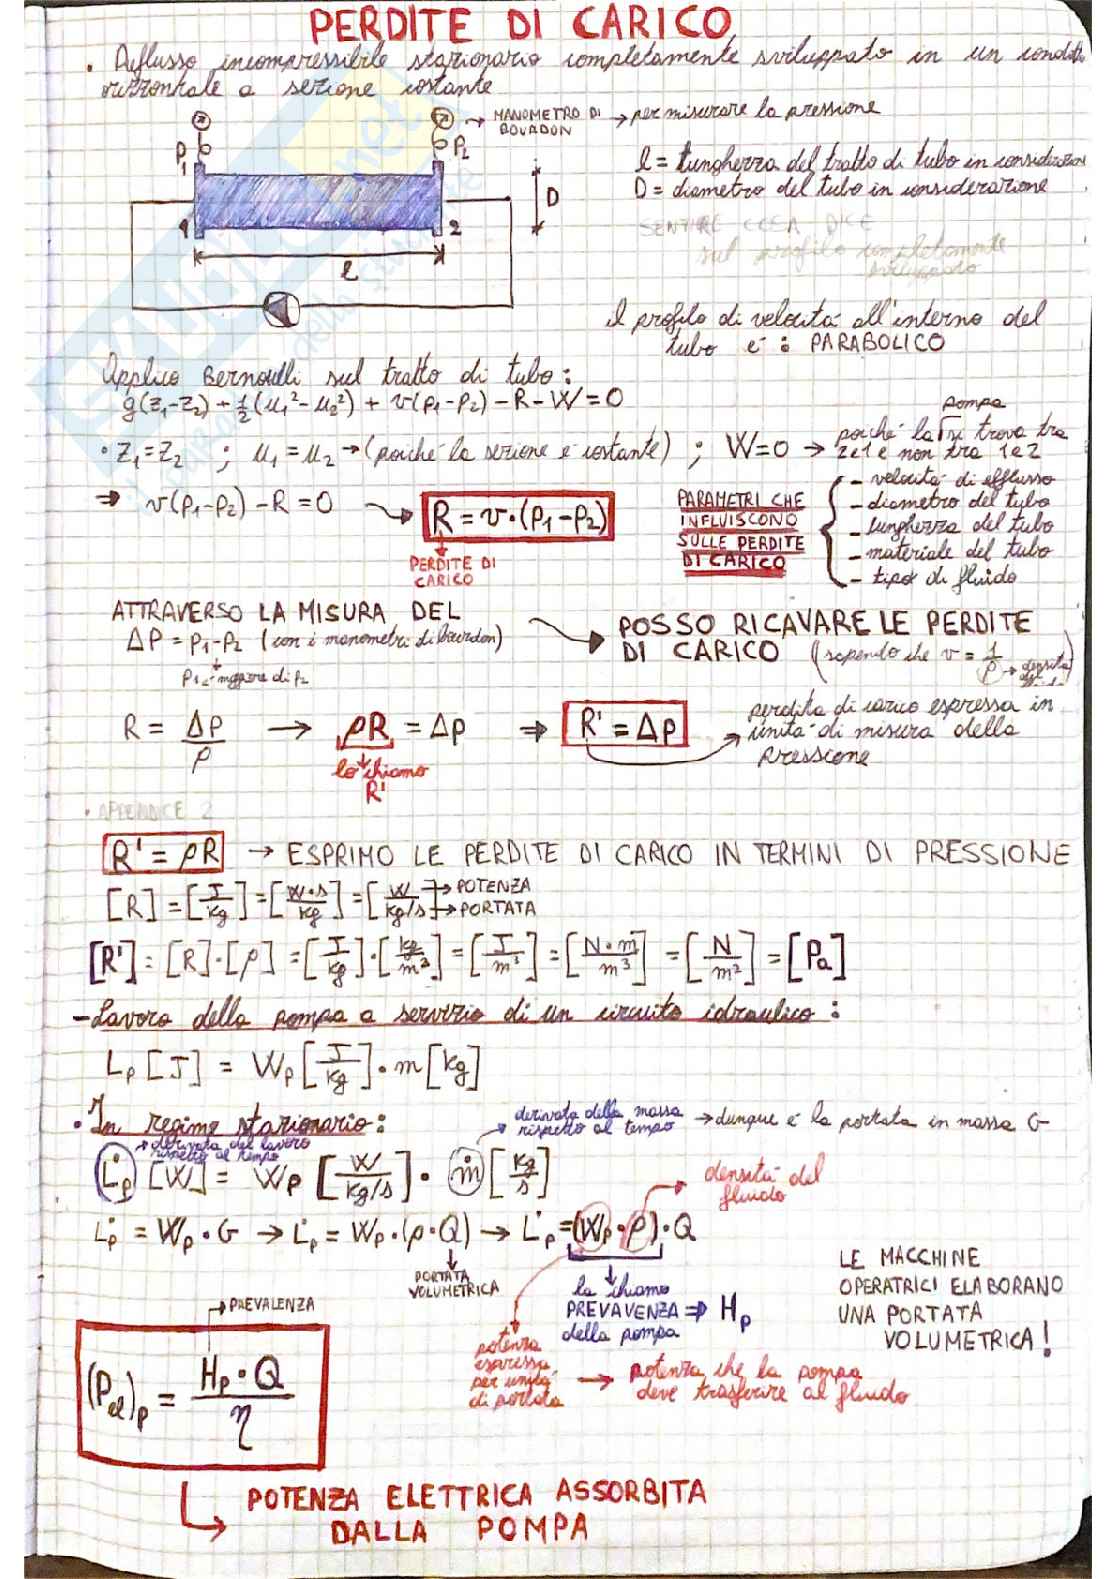 PERDITE DI CARICO
• Deflusso incompressibile stazionario completamente sviluppato in un condotto
orizzontale a sezione costante
P1
P2
→ MANOMETRO DI BOURDON → per misurare la pressione
l = lunghezza del tratto di tubo in considerazione
D = diametro del tubo in considerazione
D
1
2
l
SENTIRE COSA DICE
sul profilo completamente
sviluppato
il profilo di velocità all'interno del
tubo è : PARABOLICO
Applico Bernoulli sul tratto di tubo :
g(z1-z2) + 1/2(u1²-u2²) + v(p1-p2) - R - W = 0
• z1=z2 ; u1=u2 → (poiché la sezione è costante) ; W=0 → poiché la pompa si trova tra
2 e 1 e non tra 1 e 2
⇒ v(p1-p2) - R = 0 → R = v·(p1-p2)
PERDITE DI
CARICO
PARAMETRI CHE
INFLUISCONO
SULLE PERDITE
DI CARICO
- velocità di efflusso
- diametro del tubo
- lunghezza del tubo
- materiale del tubo
- tipo di fluido
ATTRAVERSO LA MISURA DEL
ΔP = p1-p2 (con i manometri di Bourdon)
p1 è maggiore di p2
POSSO RICAVARE LE PERDITE
DI CARICO (sapendo che v = 1/ρ → densità
R = Δp/ρ → ρR = Δp ⇒ R' = Δp
lo chiamo
R'
perdita di carico espressa in
unità di misura della
pressione
• APPENDICE 2
R' = ρR → ESPRIMO LE PERDITE DI CARICO IN TERMINI DI PRESSIONE
[R] = [J/kg] = [W·s/kg] = [W/kg/s] → POTENZA
→ PORTATA
[R'] = [R]·[ρ] = [J/kg]·[kg/m³] = [J/m³] = [N·m/m³] = [N/m²] = [Pa]
- Lavoro della pompa a servizio di un circuito idraulico :
Lp [J] = Wp [J/kg] · m [kg]
• In regime stazionario :
→ derivata del lavoro
rispetto al tempo
derivata della massa
rispetto al tempo → dunque è la portata in massa G
L̇p [W] = Wp [W/kg/s] · ṁ [kg/s]
densità del
fluido
L̇p = Wp · G → L̇p = Wp · (ρ·Q) → L̇p = (Wp · ρ) · Q
PORTATA
VOLUMETRICA
la chiamo
PREVAVENZA ⇒ Hp
della pompa
LE MACCHINE
OPERATRICI ELABORANO
UNA PORTATA
VOLUMETRICA !
→ PREVALENZA
(Pel)p = Hp · Q / η
potenza
espressa
per unità
di portata
→ potenza che la pompa
deve trasferire al fluido
POTENZA ELETTRICA ASSORBITA
DALLA POMPA